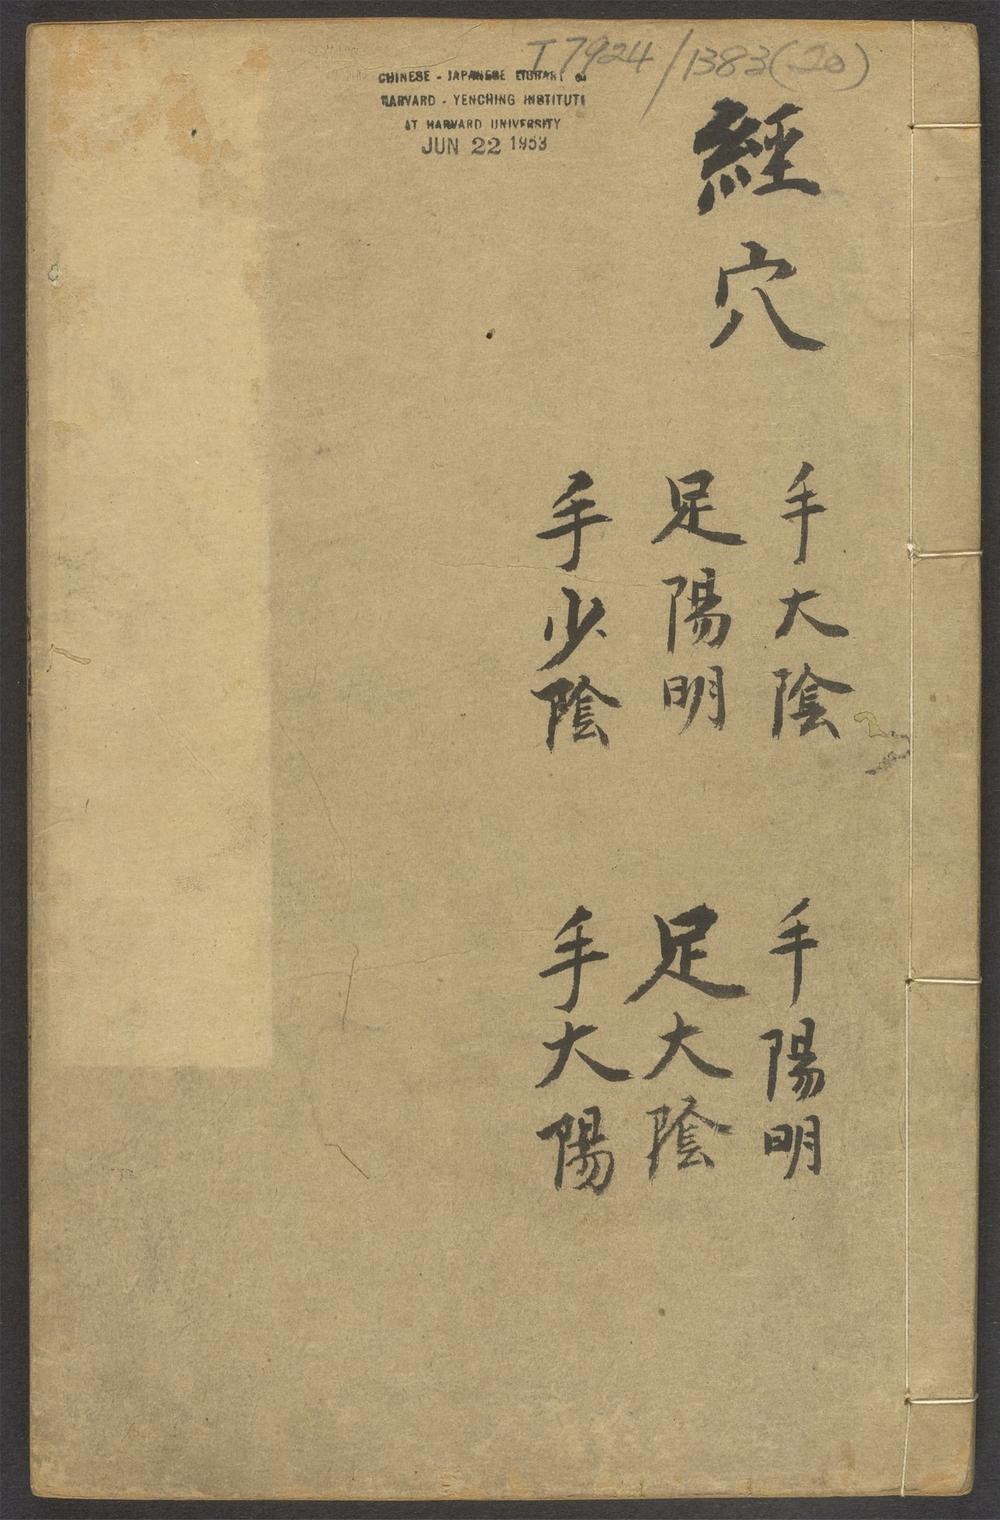 T 7924/1383(20)
CHINESE - JAPANESE LIBRARY OF
HARVARD - YENCHING INSTITUTE
AT HARVARD UNIVERSITY
JUN 22 1953
經穴
手大陰
手陽明
足陽明
足大陰
手少陰
手大陽